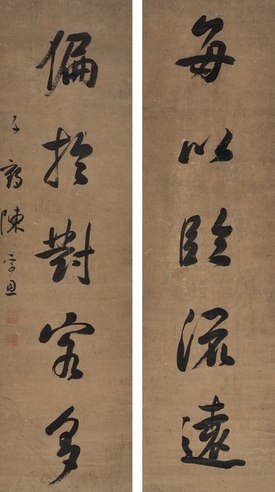 每以臨流遠
偏於對客多
子鶴陳孚恩